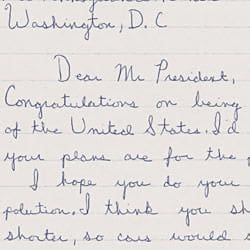 Washington, D.C
Dear Mr President,
Congratulations on being
of the United States. I'd
your plans are for the
I hope you do your
polution. I think you
shorter, so cars would